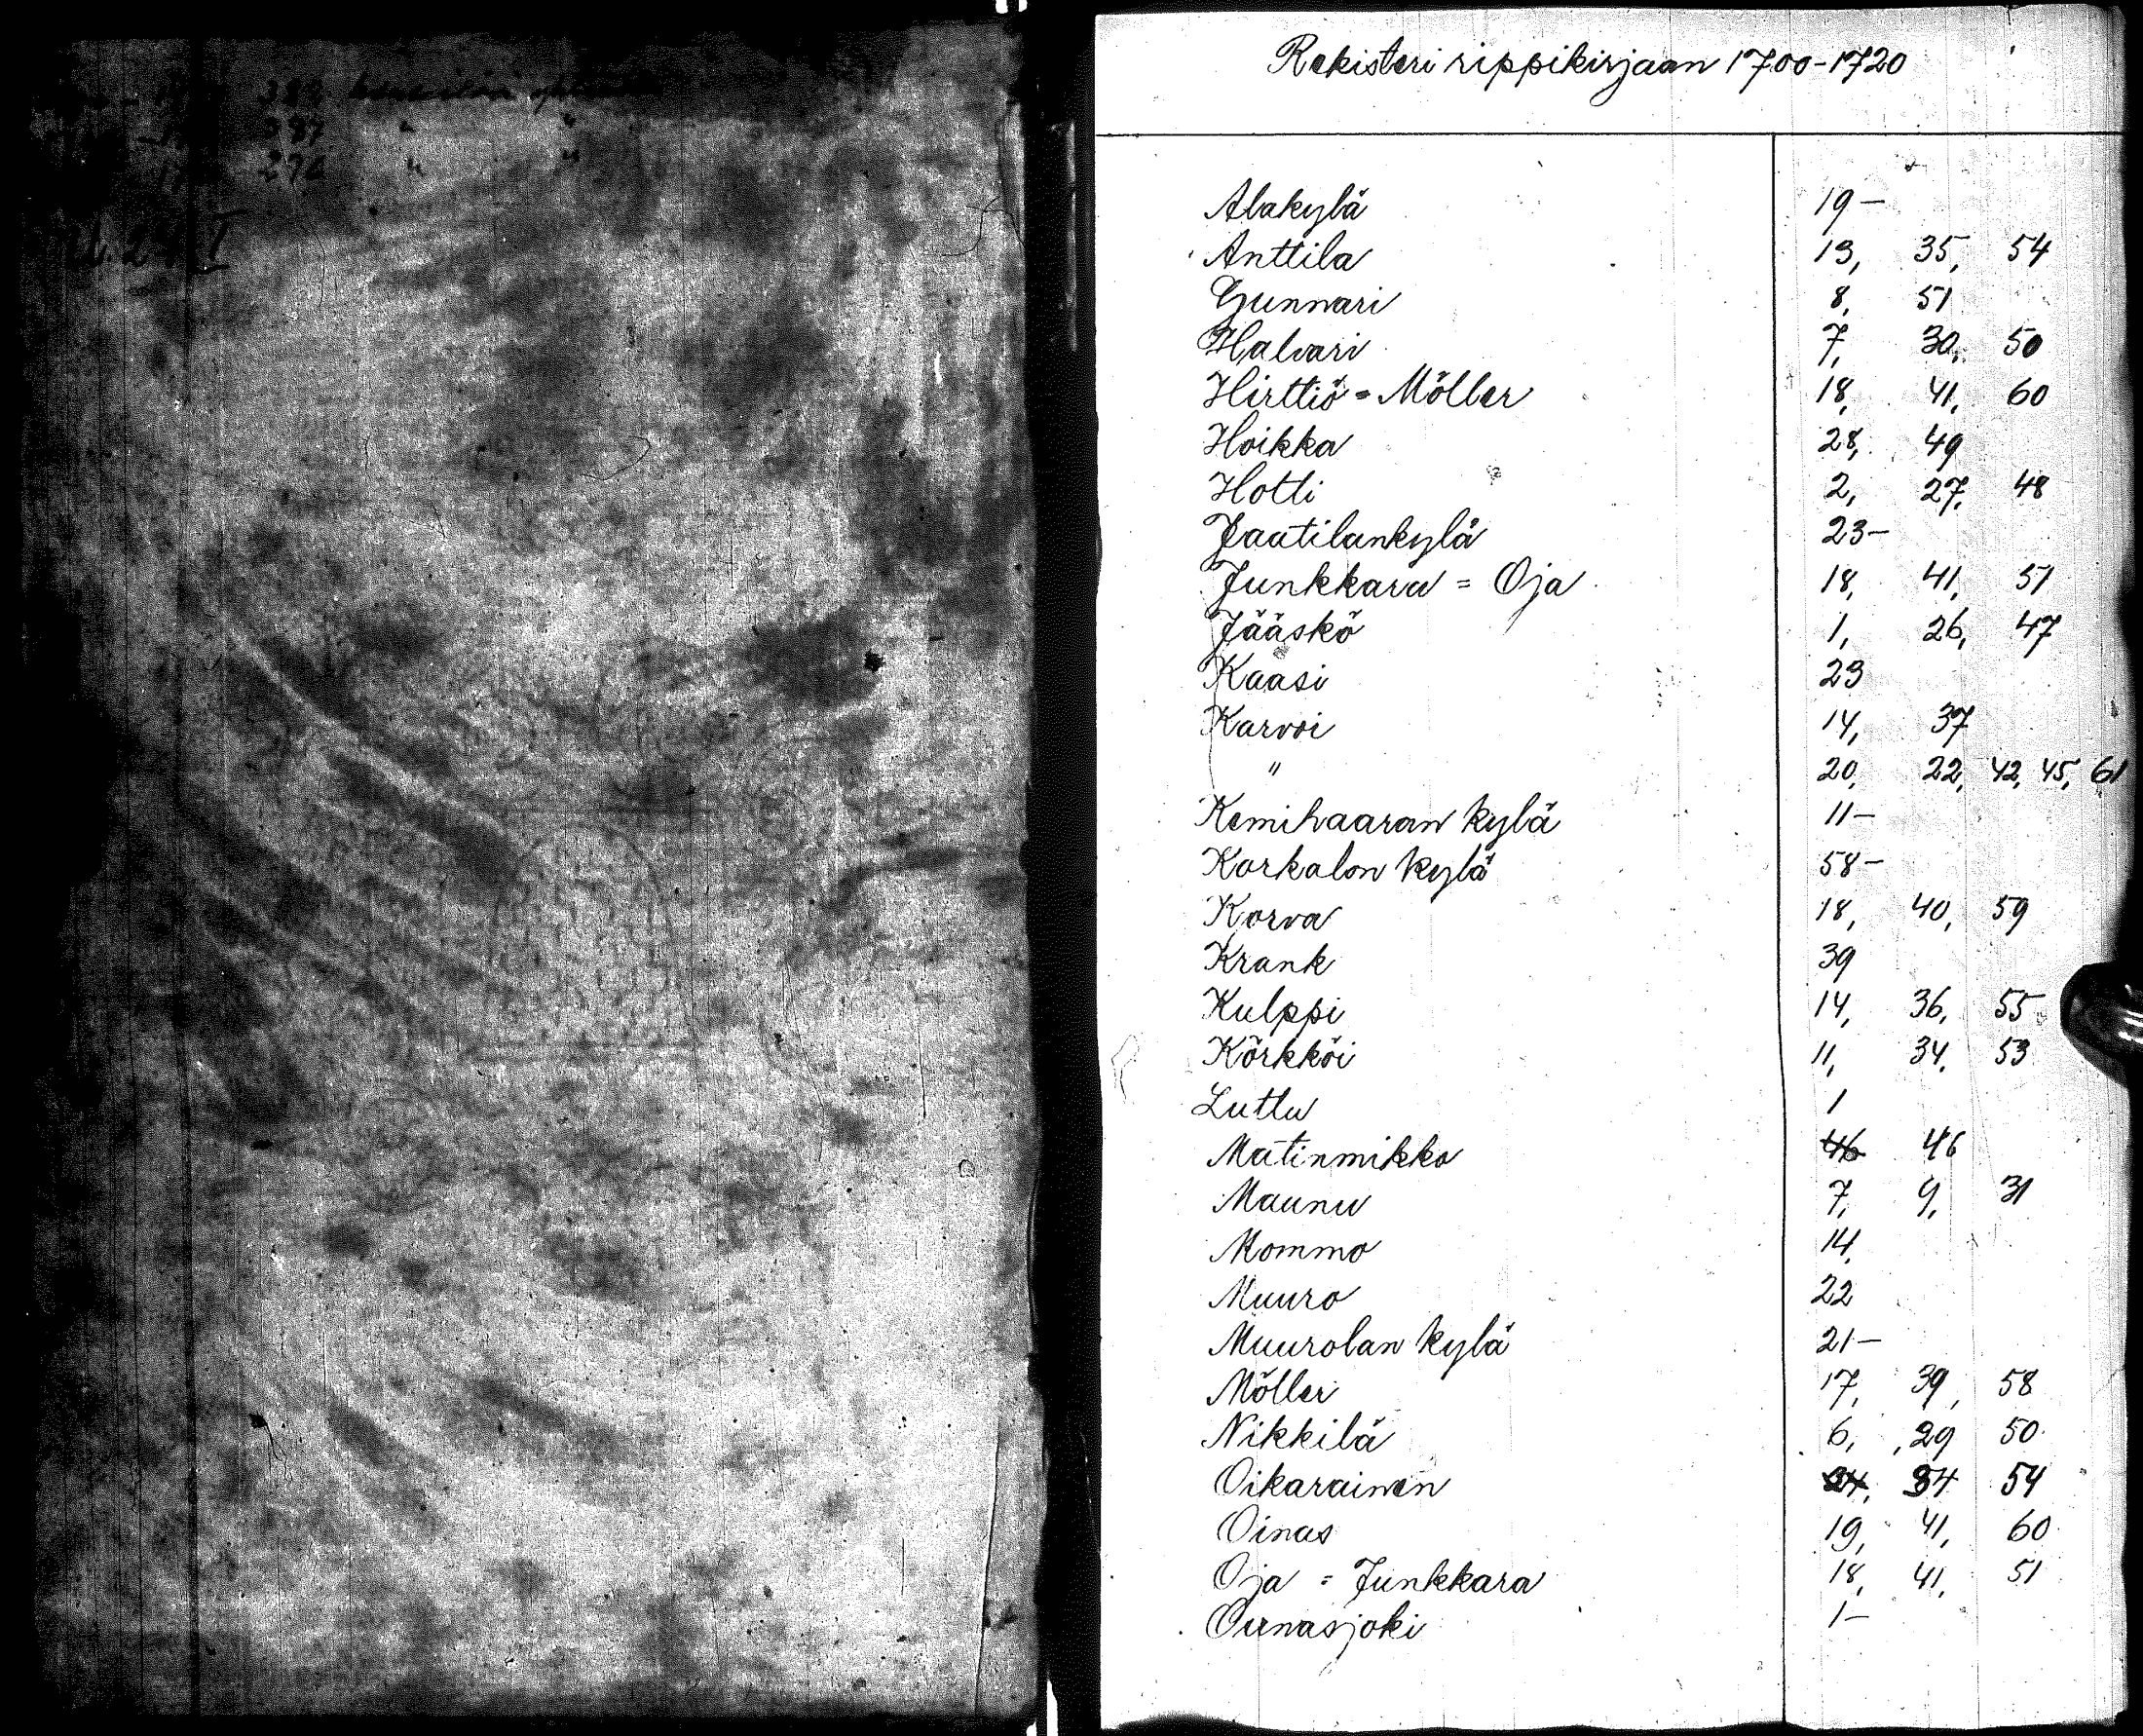 382
387
276
Rekisteri rippikirjaan 1700-1720
Alakylä 19-
Anttila 13, 35, 54
Gunnari 8, 51
Halvari 7, 30, 50
Hirttiö = Möller 18, 41, 60
Hoikka 28, 49
Hotti 2, 27, 48
Jaatilankylä 23-
Junkkara = Oja 18, 41, 51
Jääskö 1, 26, 47
Kaasi 23
Karvoi 14, 37
" 20, 22, 42, 45, 61
Kemihaaran kylä 11-
Korkalon kylä 58-
Korva 18, 40, 59
Krank 39
Kulppi 14, 36, 55
Körkköi 11, 34, 53
Luttu 1
Matinmikko 46 46
Maunu 7, 9, 31
Mommo 14,
Muuro 22
Muurolan kylä 21-
Möller 17, 39, 58
Nikkilä 6, 29 50
Oikarainen 34, 34 54
Oinas 19, 41, 60
Oja = Junkkara 18, 41, 51
Ounasjoki 1-